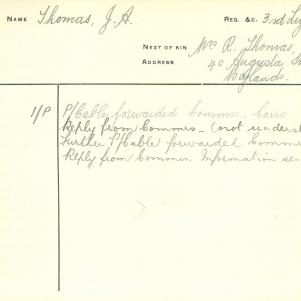 NAME Thomas, J. A. REG. &C. 3rd Lig
NEXT OF KIN Mrs R. Thomas,
ADDRESS 40 Augusta St
Maylands.
1/P P/Cable forwarded Commrs., Cairo
Reply from Commrs - (not underst
Further P/Cable forwarded Comm
Reply from Commrs Information sen